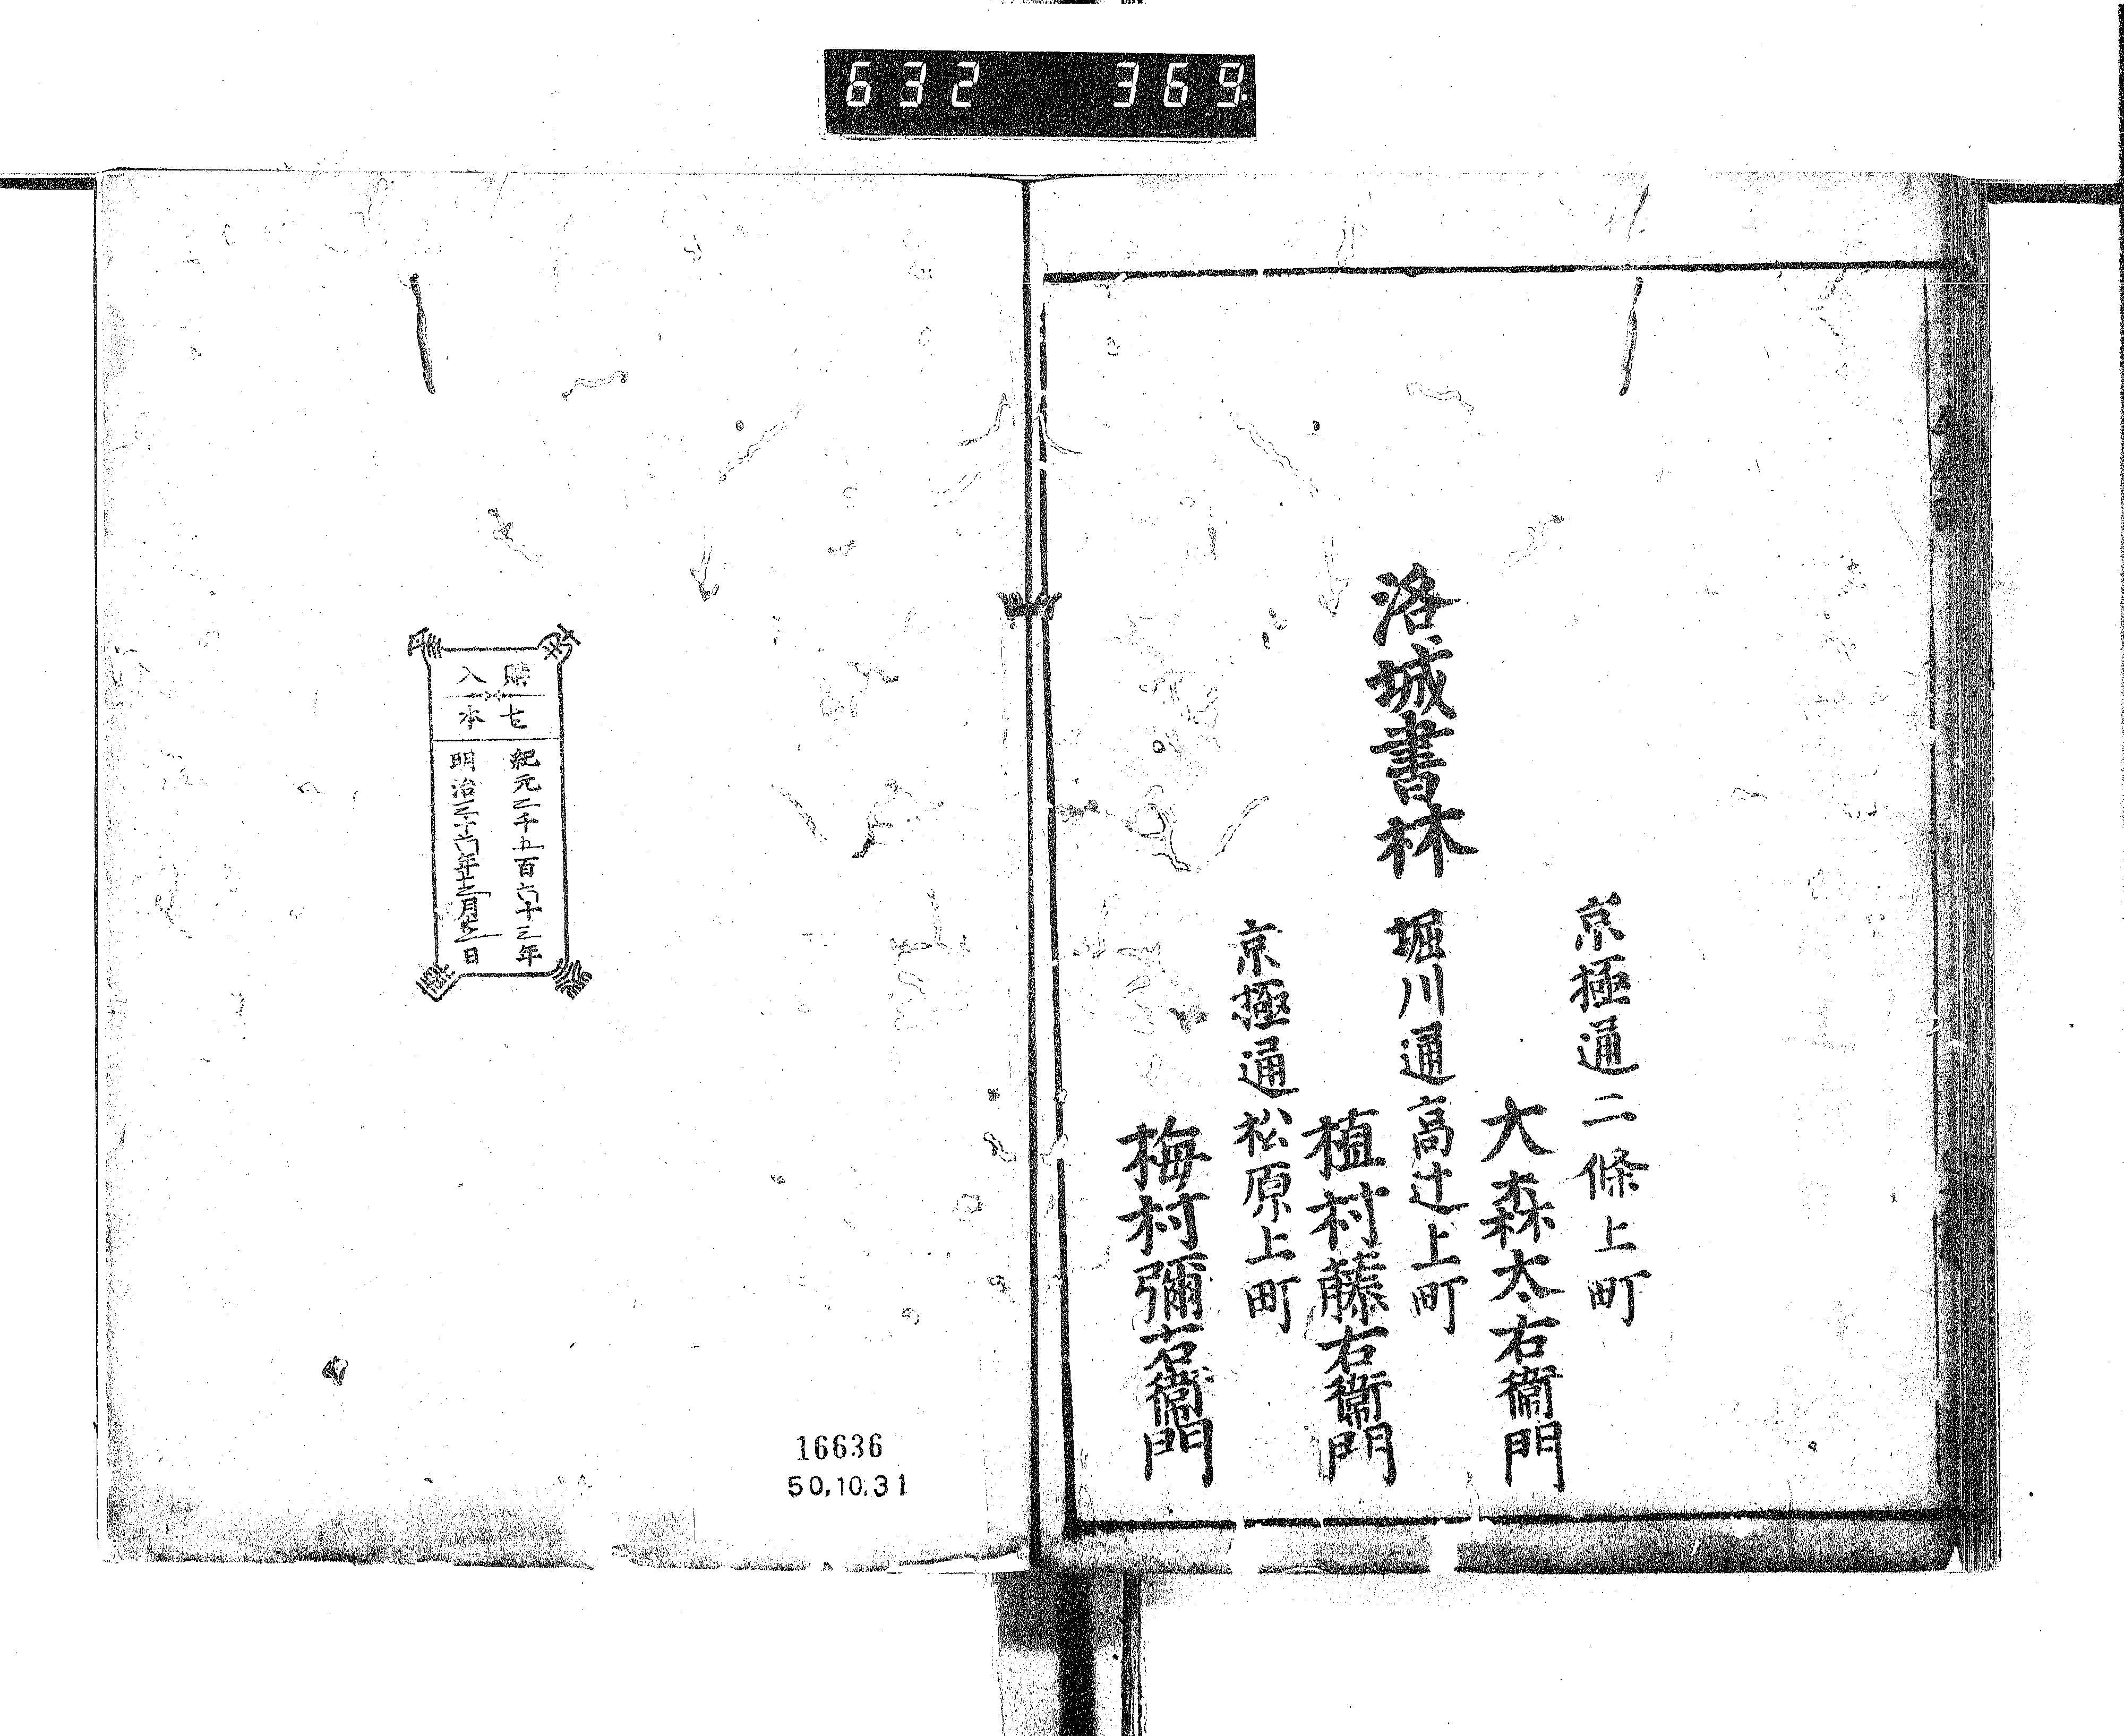 632 369
京極通二條上町
大森太右衞門
洛城書林
堀川通高辻上町
植村藤右衞門
京極通松原上町
梅村彌右衞門
購入
紀元二千五百六十三年
16636
50.10.31